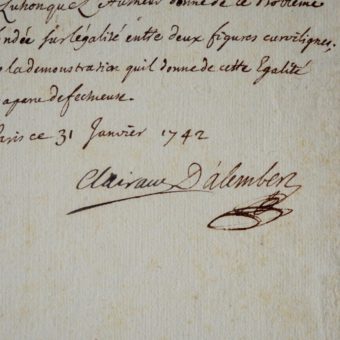 donne de ce Probleme
ndée sur legalité entre deux figures curvilignes.
la demonstration quil donne de cette Egalité
defectueuse.
Paris ce 31 Janvier 1742
Clairaut D'alembert